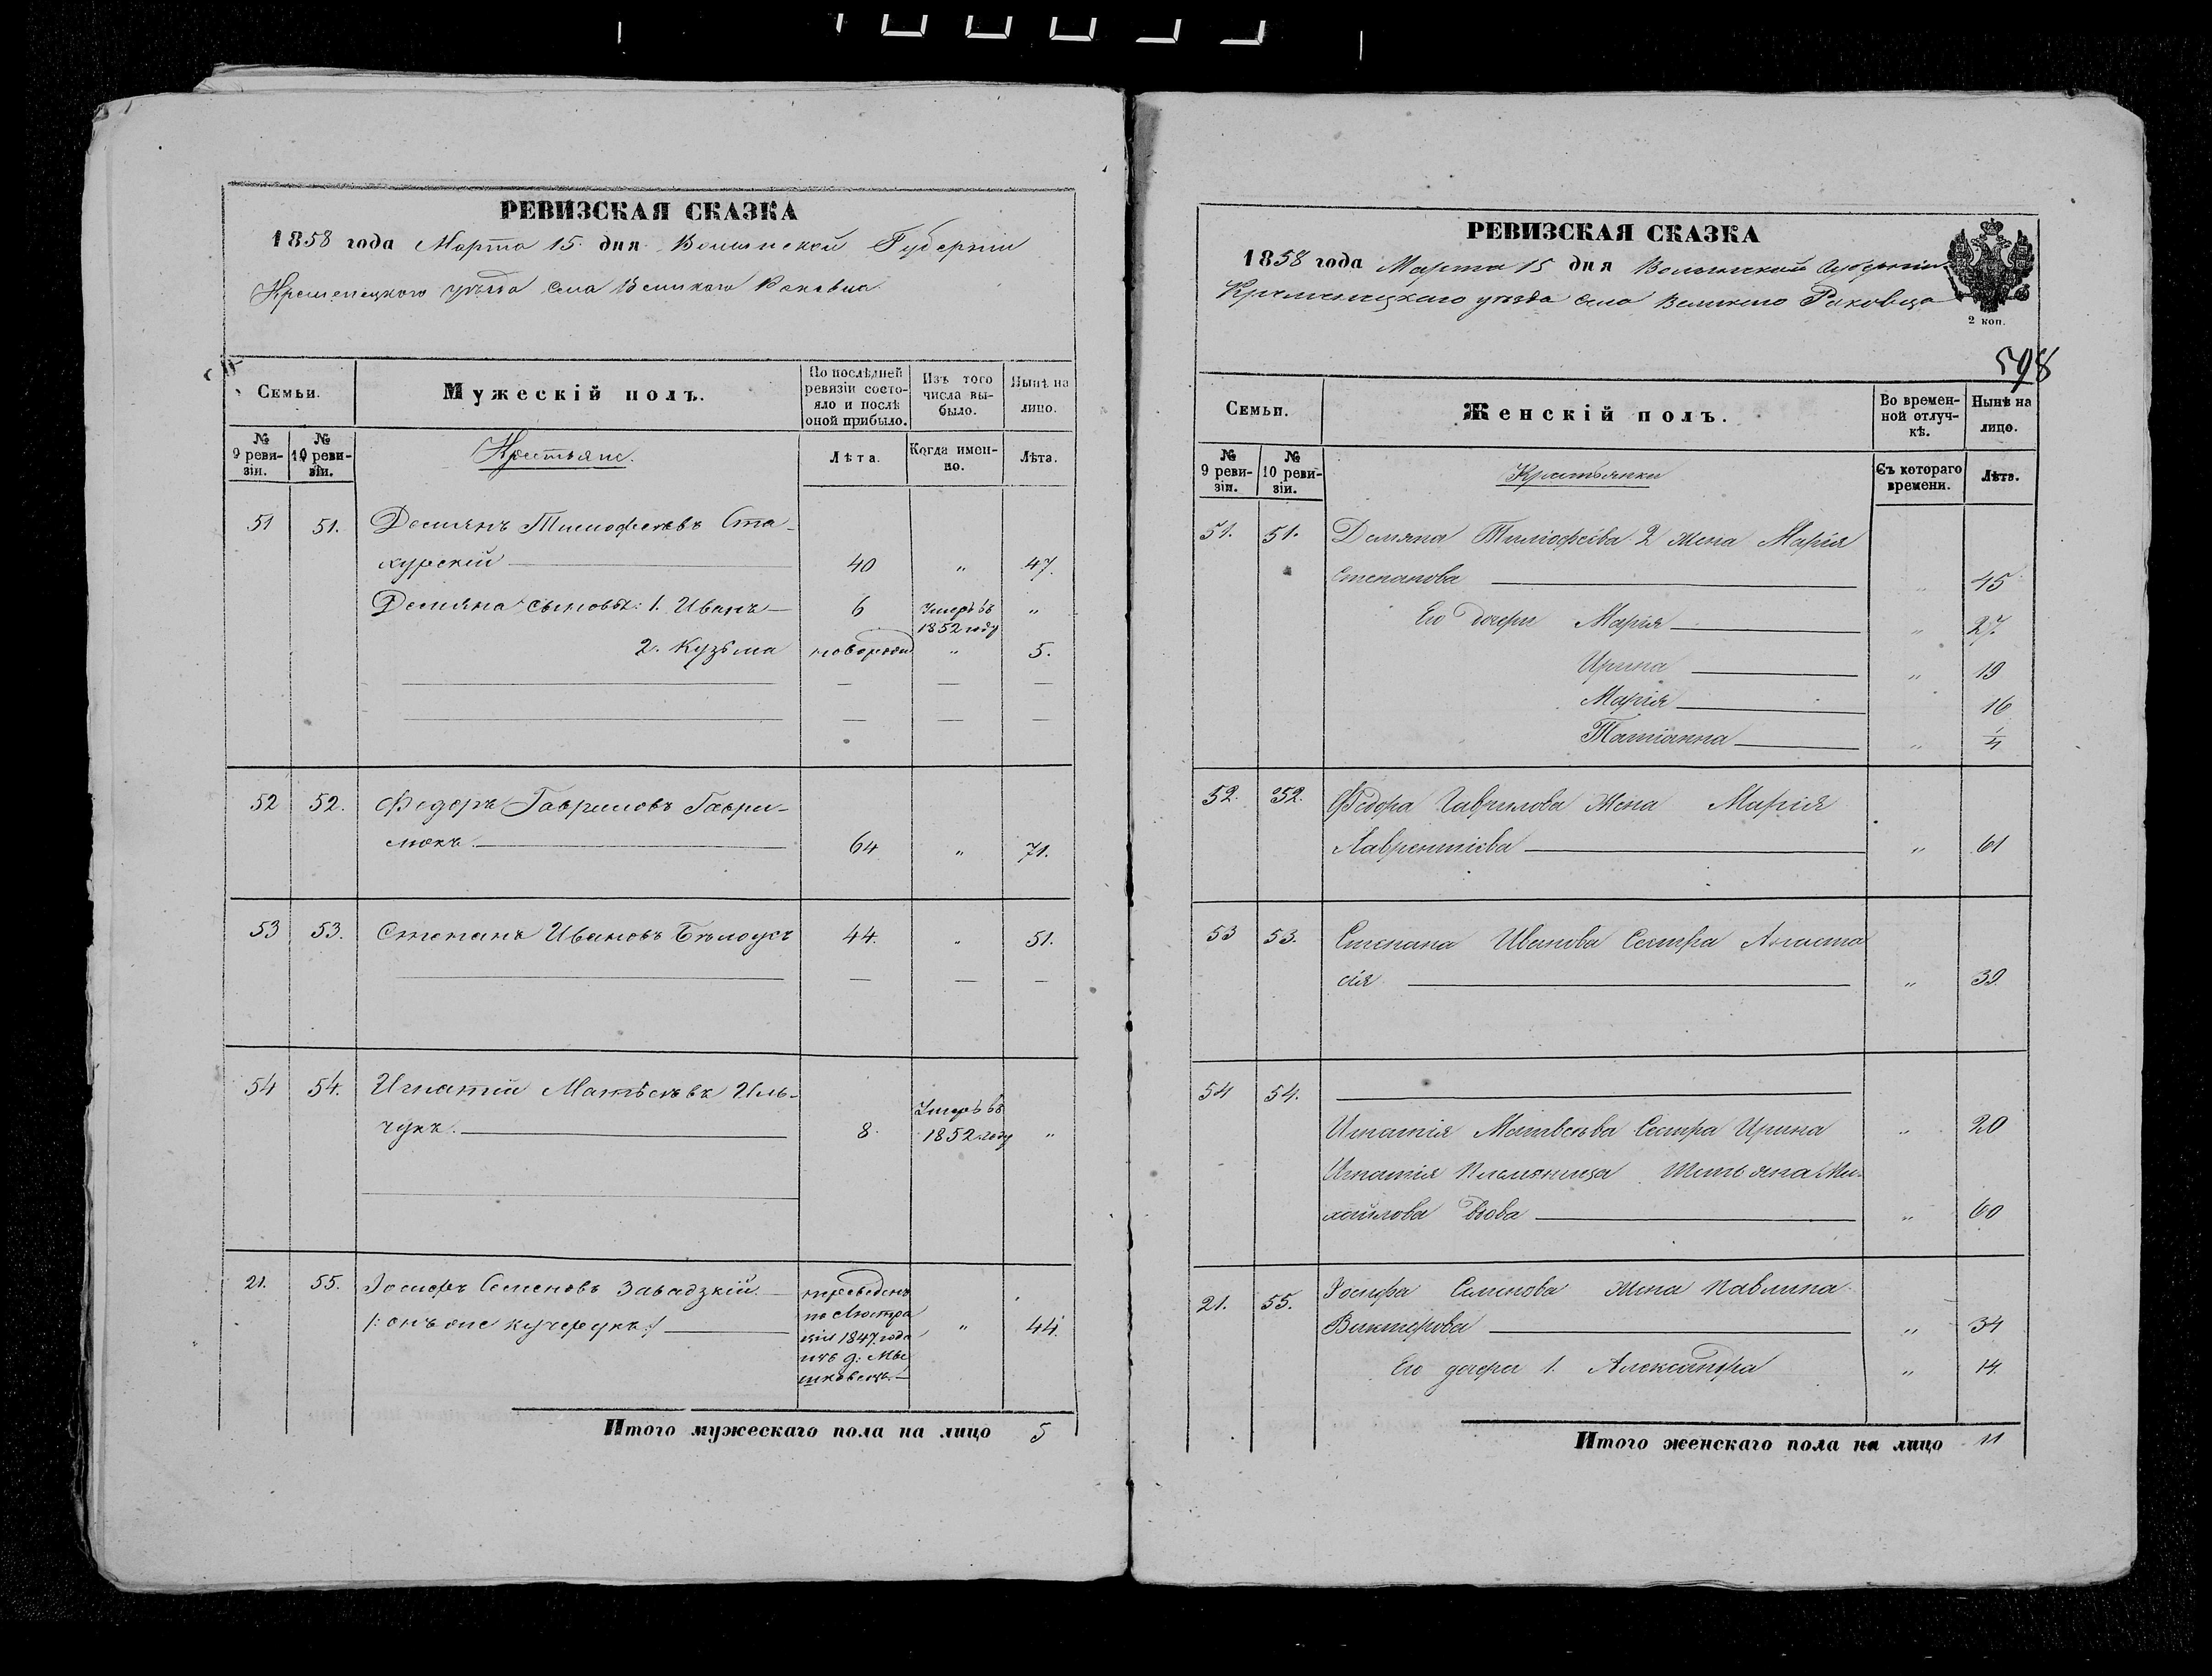 РЕВИЗСКАЯ СКАЗКА
1858 года Марта 15 дня Волынской Губерніи
Кременецкого уѣзда села Великаго Раковца
Семьи.
Мужескій полъ.
По послѣдней ревизіи состояло и послѣ оной прибыло.
Изъ того числа выбыло.
Ныне на лицо.
№ 9 ревизіи.
№ 10 ревизіи.
Крестьяне.
Лѣта.
Когда именно.
Лѣта.
51 51. Демьянъ Тимофеевъ Ста-
хурскій 40 " 47.
Демяна сыновья: 1. Иванъ 6 Умеръ въ 1852 году "
2. Кузьма новорожд " 5.
52 52. Федоръ Гавриловъ Гаври-
люкъ 64 " 71.
53 53. Степанъ Ивановъ Бѣлоусъ 44. " 51.
54 54. Игнатій Матвѣевъ Иль-
чукъ. 8. Умеръ въ 1852 году "
21. 55. Іосифъ Семеновъ Завадзкій переведенъ
/: онъ же Кучерукъ :/ по Люстра
ціи 1847 года " 44.
изъ д: Мы
шковецъ.
Итого мужескаго пола на лицо 5
РЕВИЗСКАЯ СКАЗКА
1858 года Марта 15 дня Волынской Губерніи
Кременецкаго уѣзда села Великаго Раковца
2 коп.
598
Семьи.
Женскій полъ.
Во временной отлучкѣ.
Нынѣ на лицо.
№ 9 ревизіи.
№ 10 ревизіи.
Крестьянки
Съ котораго времени.
Лѣта.
51. 51. Демяна Тимофѣева 2 жена Марія
Степанова " 45
Его дочери Марія " 27.
Ирина " 19
Марія 16
Татіанна " 1/4
52. 52. Федора Гаврилова жена Марія
Лаврентіева " 61
53 53. Степана Иванова Сестра Анаста
сія " 39.
54 54.
Игнатія Матвѣева Сестра Ирина " 20
Игнатія Племяница Татьяна Ми-
хайлова вдова " 60
21. 55. Іосифа Семенова жена Павлина
Викторова " 34
Его дочери 1. Александра " 14.
Итого женскаго пола на лицо 11